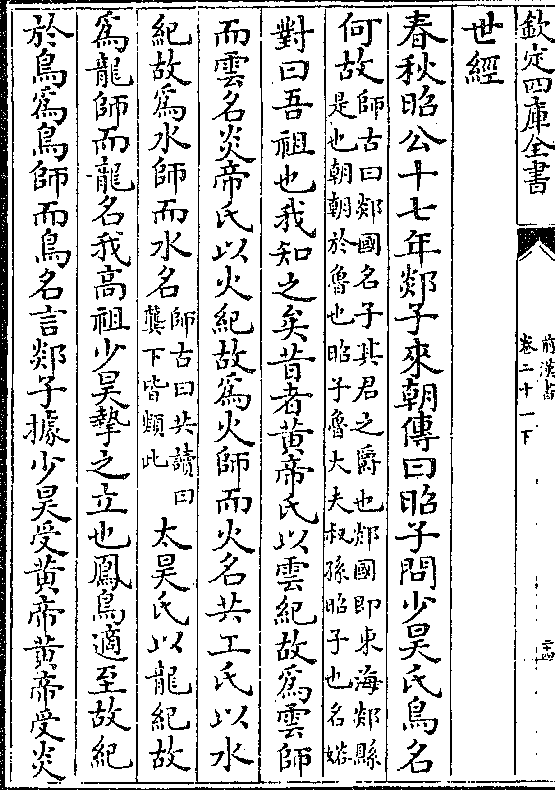 欽定四庫全書
前漢書
卷二十一下
世經
春秋昭公十七年郯子來朝傳曰昭子問少昊氏鳥名
何故
師古曰郯國名子其君之爵也郯國即東海郯縣
是也朝朝於魯也昭子魯大夫叔孫昭子也名婼
對曰吾祖也我知之矣昔者黃帝氏以雲紀故為雲師
而雲名炎帝氏以火紀故為火師而火名共工氏以水
紀故為水師而水名
師古曰共讀曰
龔下皆類此
太昊氏以龍紀故
為龍師而龍名我高祖少昊摯之立也鳳鳥適至故紀
於鳥為鳥師而鳥名言郯子據少昊受黃帝黃帝受炎